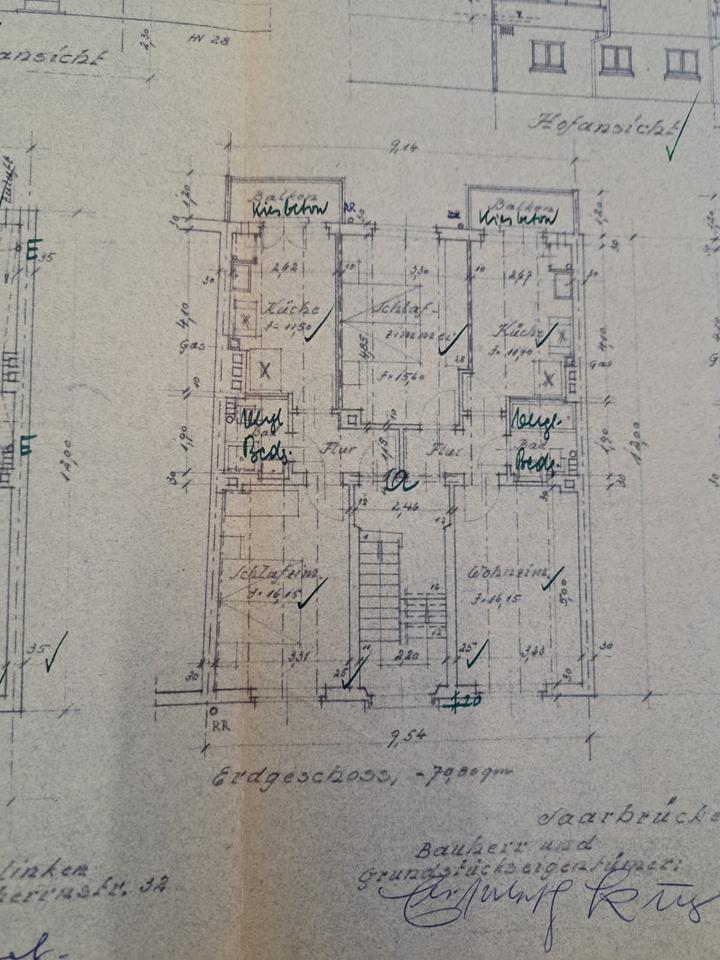 ansicht
2,30
HN 28
Hofansicht
9,14
Balkon
Kiesbeton
RR
Balkon
Kiesbeton
1,20
1,20
35
30
2,42
15
3,30
10
2,47
30
Küche
f= 11,50
Schlaf-
zimmer
f= 15,60
Küche
f= 11,70
4,10
4,85
4,10
Gas
Gas
Vergl.
Bad
Bedg.
Vergl.
Bad
Bedg.
1,90
Flur
Flur
1,90
12,00
12,00
30
30
2,46
Schlafzim.
f= 16,15
Wohnzim.
f= 16,15
5,00
35
30
3,31
25
2,20
25
3,40
30
30
RR
9,54
Erdgeschoss, -79,80qm
Saarbrücke
Bauherr und
Grundstückseigentümer:
linken
herrnstr. 32